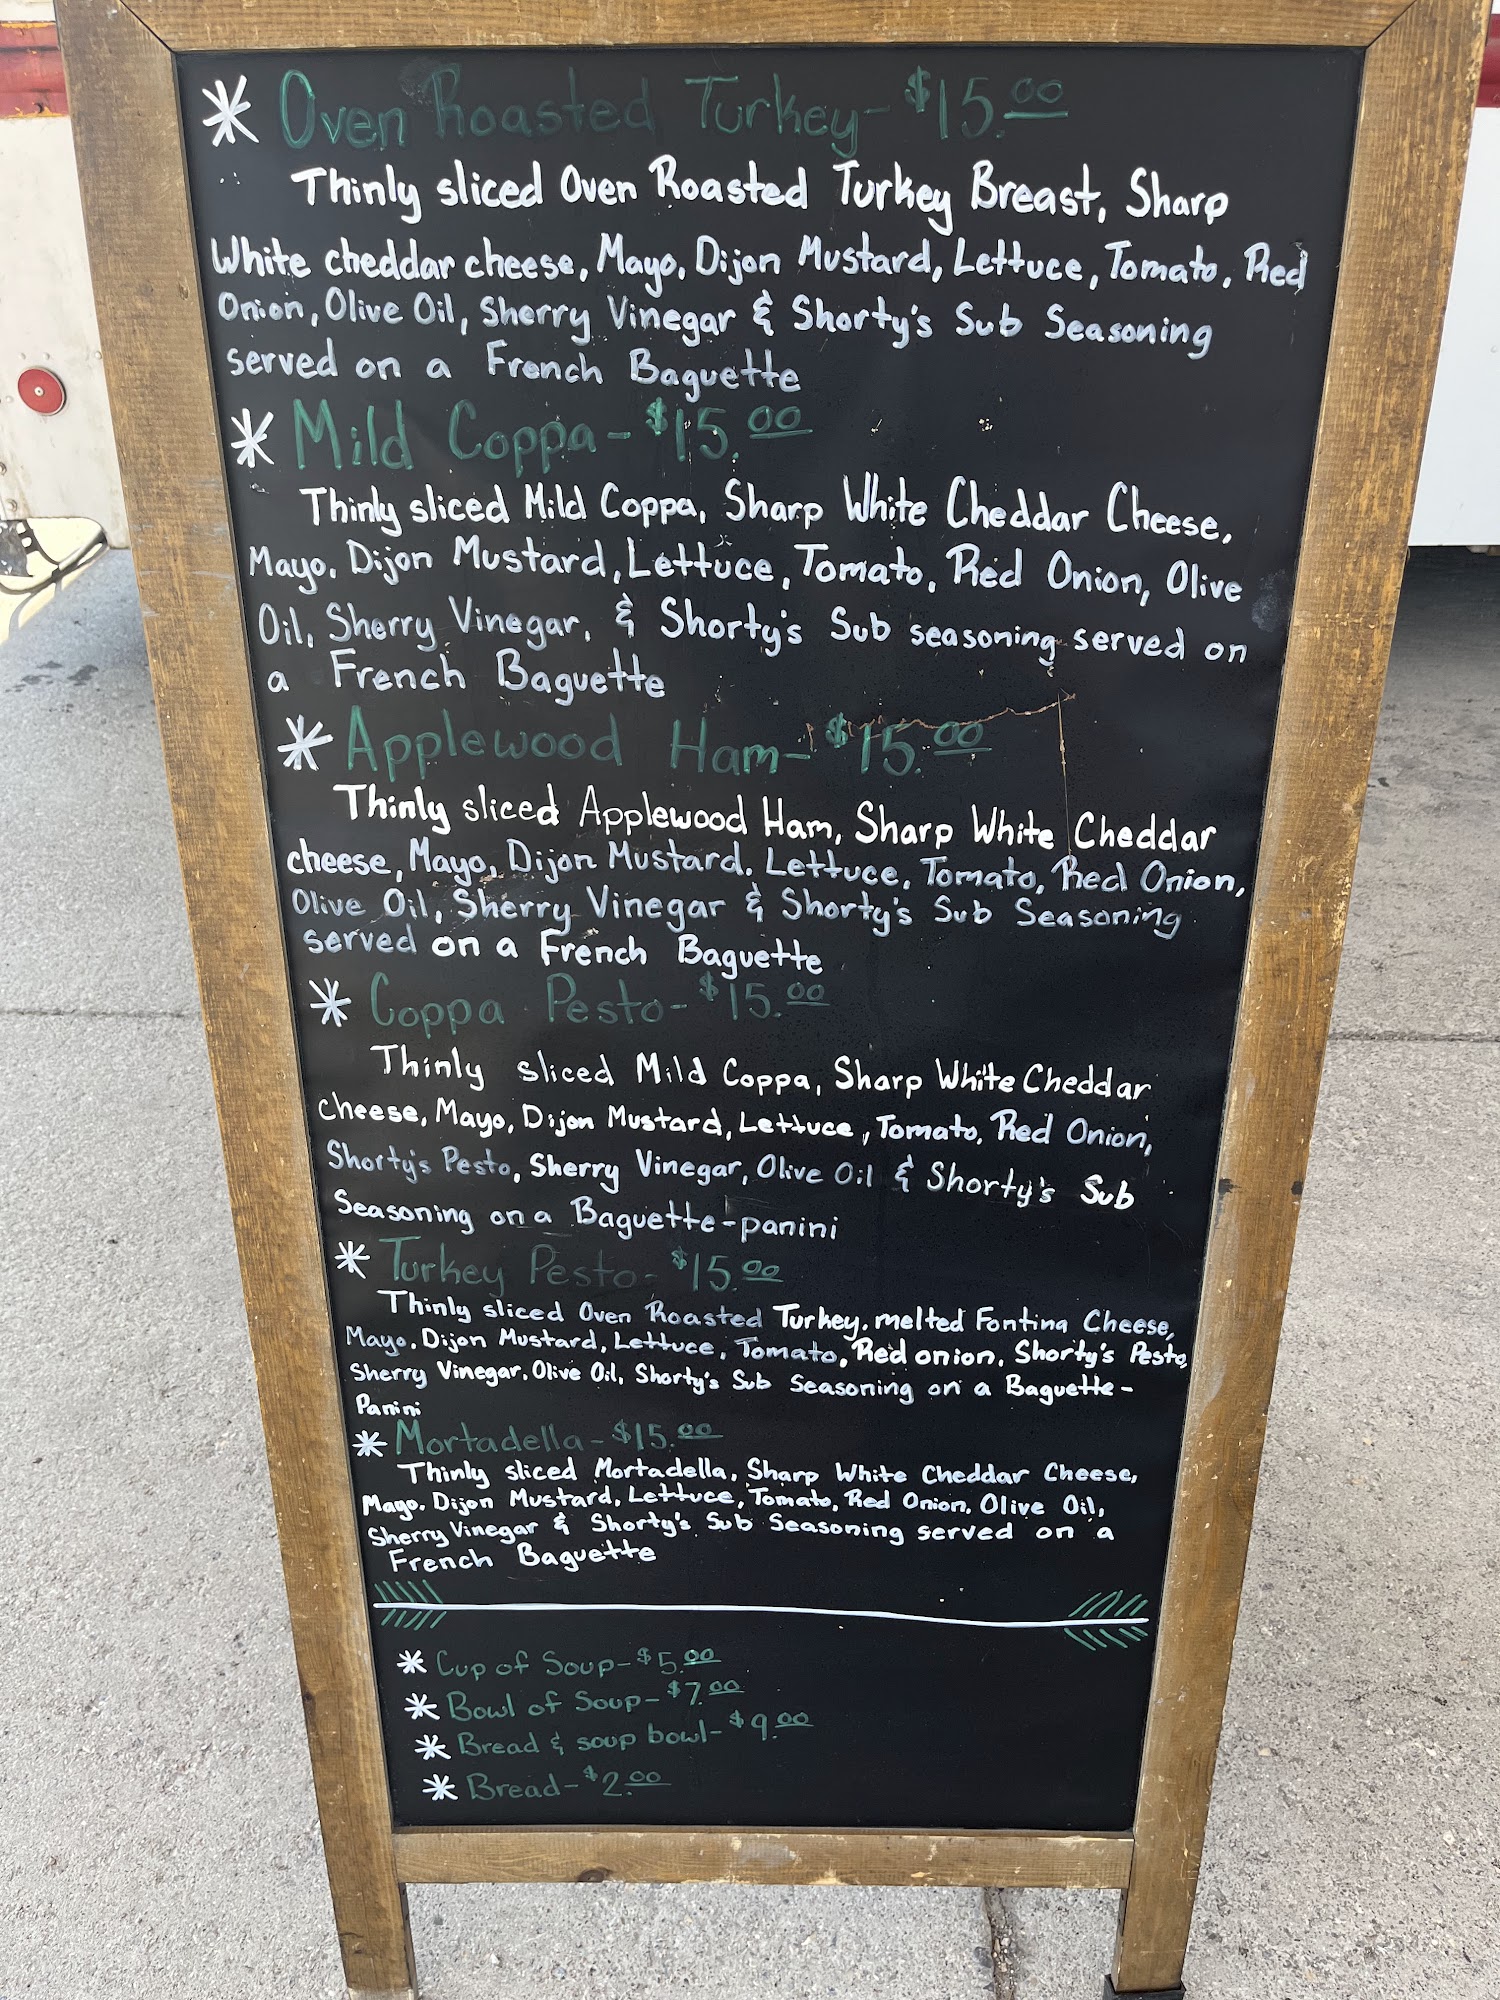 * Oven Roasted Turkey- $15.00
Thinly sliced Oven Roasted Turkey Breast, Sharp
White cheddar cheese, Mayo, Dijon Mustard, Lettuce, Tomato, Red
Onion, Olive Oil, Sherry Vinegar & Shorty's Sub Seasoning
served on a French Baguette
* Mild Coppa- $15.00
Thinly sliced Mild Coppa, Sharp White Cheddar Cheese,
Mayo, Dijon Mustard, Lettuce, Tomato, Red Onion, Olive
Oil, Sherry Vinegar, & Shorty's Sub seasoning served on
a French Baguette
* Applewood Ham- $15.00
Thinly sliced Applewood Ham, Sharp White Cheddar
cheese, Mayo, Dijon Mustard, Lettuce, Tomato, Red Onion,
Olive Oil, Sherry Vinegar & Shorty's Sub Seasoning
served on a French Baguette
* Coppa Pesto- $15.00
Thinly sliced Mild Coppa, Sharp White Cheddar
Cheese, Mayo, Dijon Mustard, Lettuce, Tomato, Red Onion,
Shorty's Pesto, Sherry Vinegar, Olive Oil & Shorty's Sub
Seasoning on a Baguette-panini
* Turkey Pesto- $15.00
Thinly sliced Oven Roasted Turkey, melted Fontina Cheese,
Mayo, Dijon Mustard, Lettuce, Tomato, Red onion, Shorty's Pesto,
Sherry Vinegar, Olive Oil, Shorty's Sub Seasoning on a Baguette-
Panini
* Mortadella- $15.00
Thinly sliced Mortadella, Sharp White Cheddar Cheese,
Mayo, Dijon Mustard, Lettuce, Tomato, Red Onion, Olive Oil,
Sherry Vinegar & Shorty's Sub Seasoning served on a
French Baguette
* Cup of Soup- $5.00
* Bowl of Soup- $7.00
* Bread & soup bowl- $9.00
* Bread- $2.00